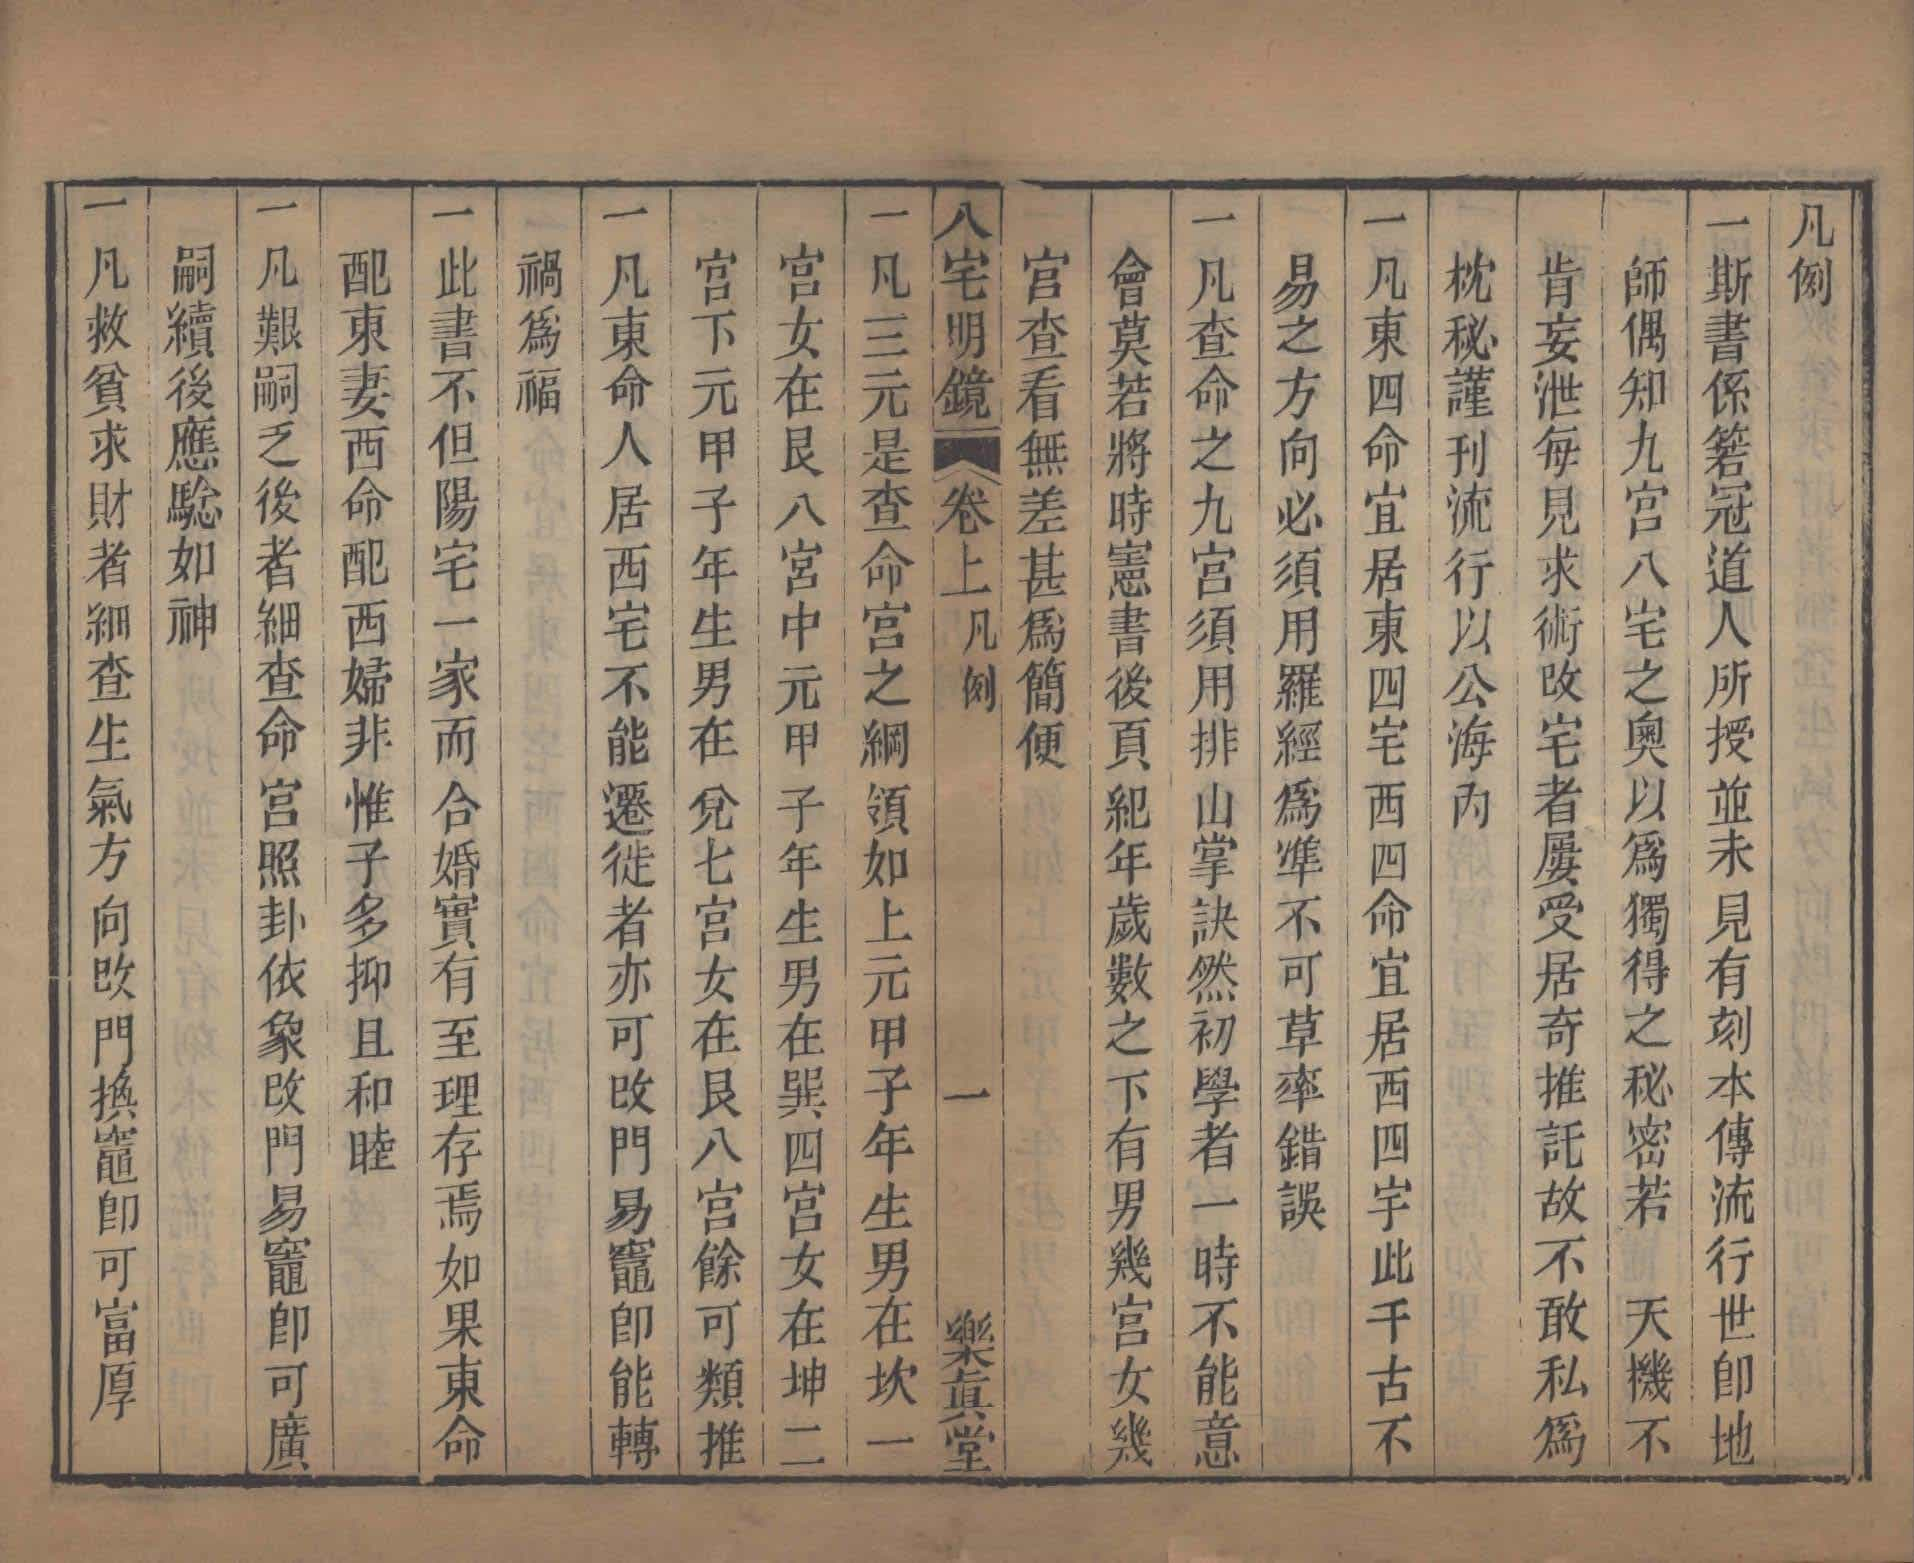 凡例
一斯書係箬冠道人所授並未見有刻本傳流行世卽地
師偶知九宮八宅之奧以爲獨得之秘密若　天機不
肯妄泄每見求術改宅者屢受居奇推託故不敢私爲
枕秘謹刊流行以公海內
一凡東四命宜居東四宅西四命宜居西四宇此千古不
易之方向必須用羅經爲準不可草率錯誤
一凡查命之九宮須用排山掌訣然初學者一時不能意
會莫若將時憲書後頁紀年歲數之下有男幾宮女幾
宮查看無差甚爲簡便
八宅明鏡　卷上　凡例　一　樂眞堂
一凡三元是查命宮之綱領如上元甲子年生男在坎一
宮女在艮八宮中元甲子年生男在巽四宮女在坤二
宮下元甲子年生男在兌七宮女在艮八宮餘可類推
一凡東命人居西宅不能遷徙者亦可改門易竈卽能轉
禍爲福
一此書不但陽宅一家而合婚實有至理存焉如果東命
配東妻西命配西婦非惟子多抑且和睦
一凡艱嗣乏後者細查命宮照卦依象改門易竈卽可廣
嗣續後應騐如神
一凡救貧求財者細查生氣方向改門換竈卽可富厚